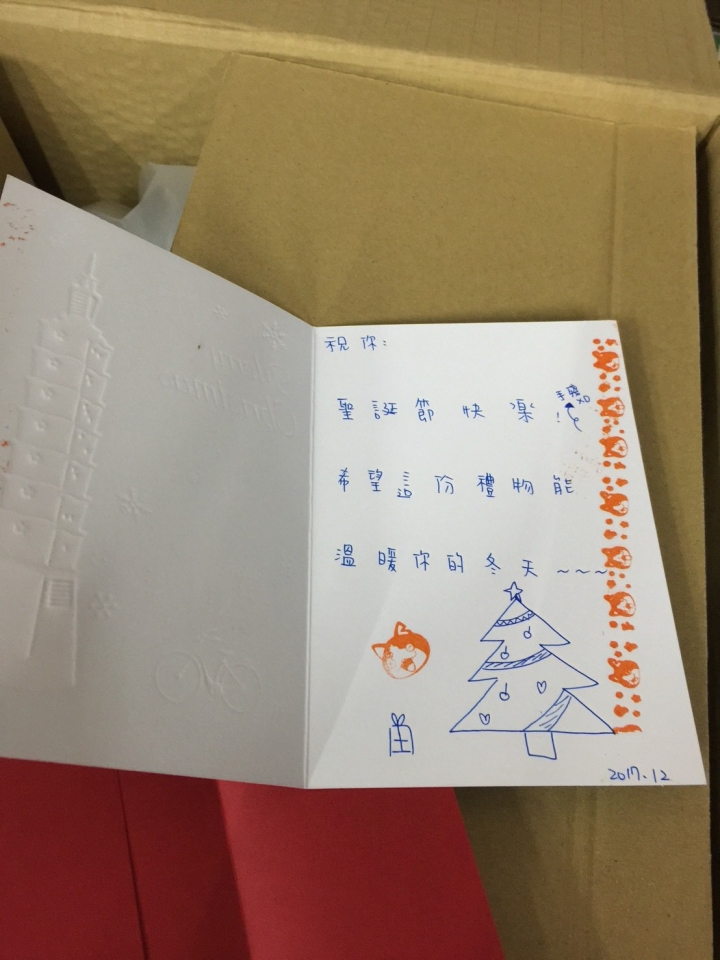 祝你：
聖誕節快樂！
手殘XD
希望這份禮物能
溫暖你的冬天~~~
2017.12